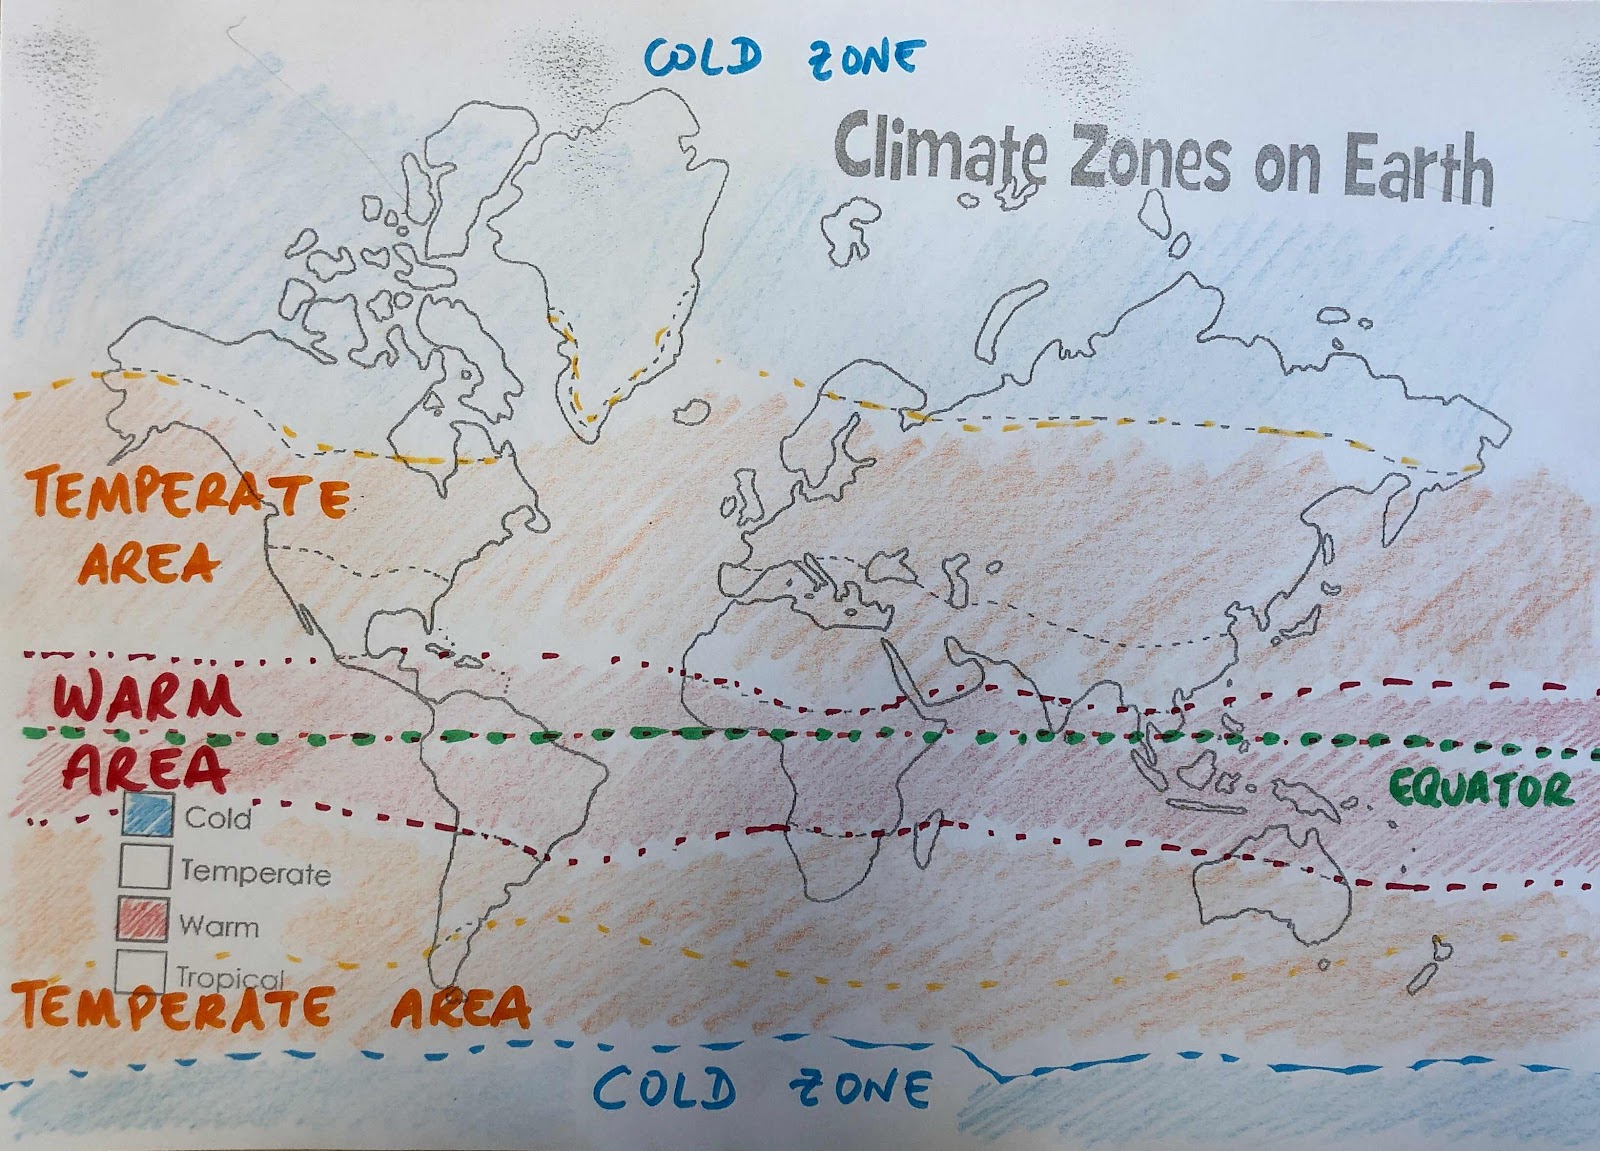 COLD ZONE
Climate Zones on Earth
TEMPERATE
AREA
WARM
AREA
EQUATOR
Cold
Temperate
Warm
Tropical
TEMPERATE AREA
COLD ZONE